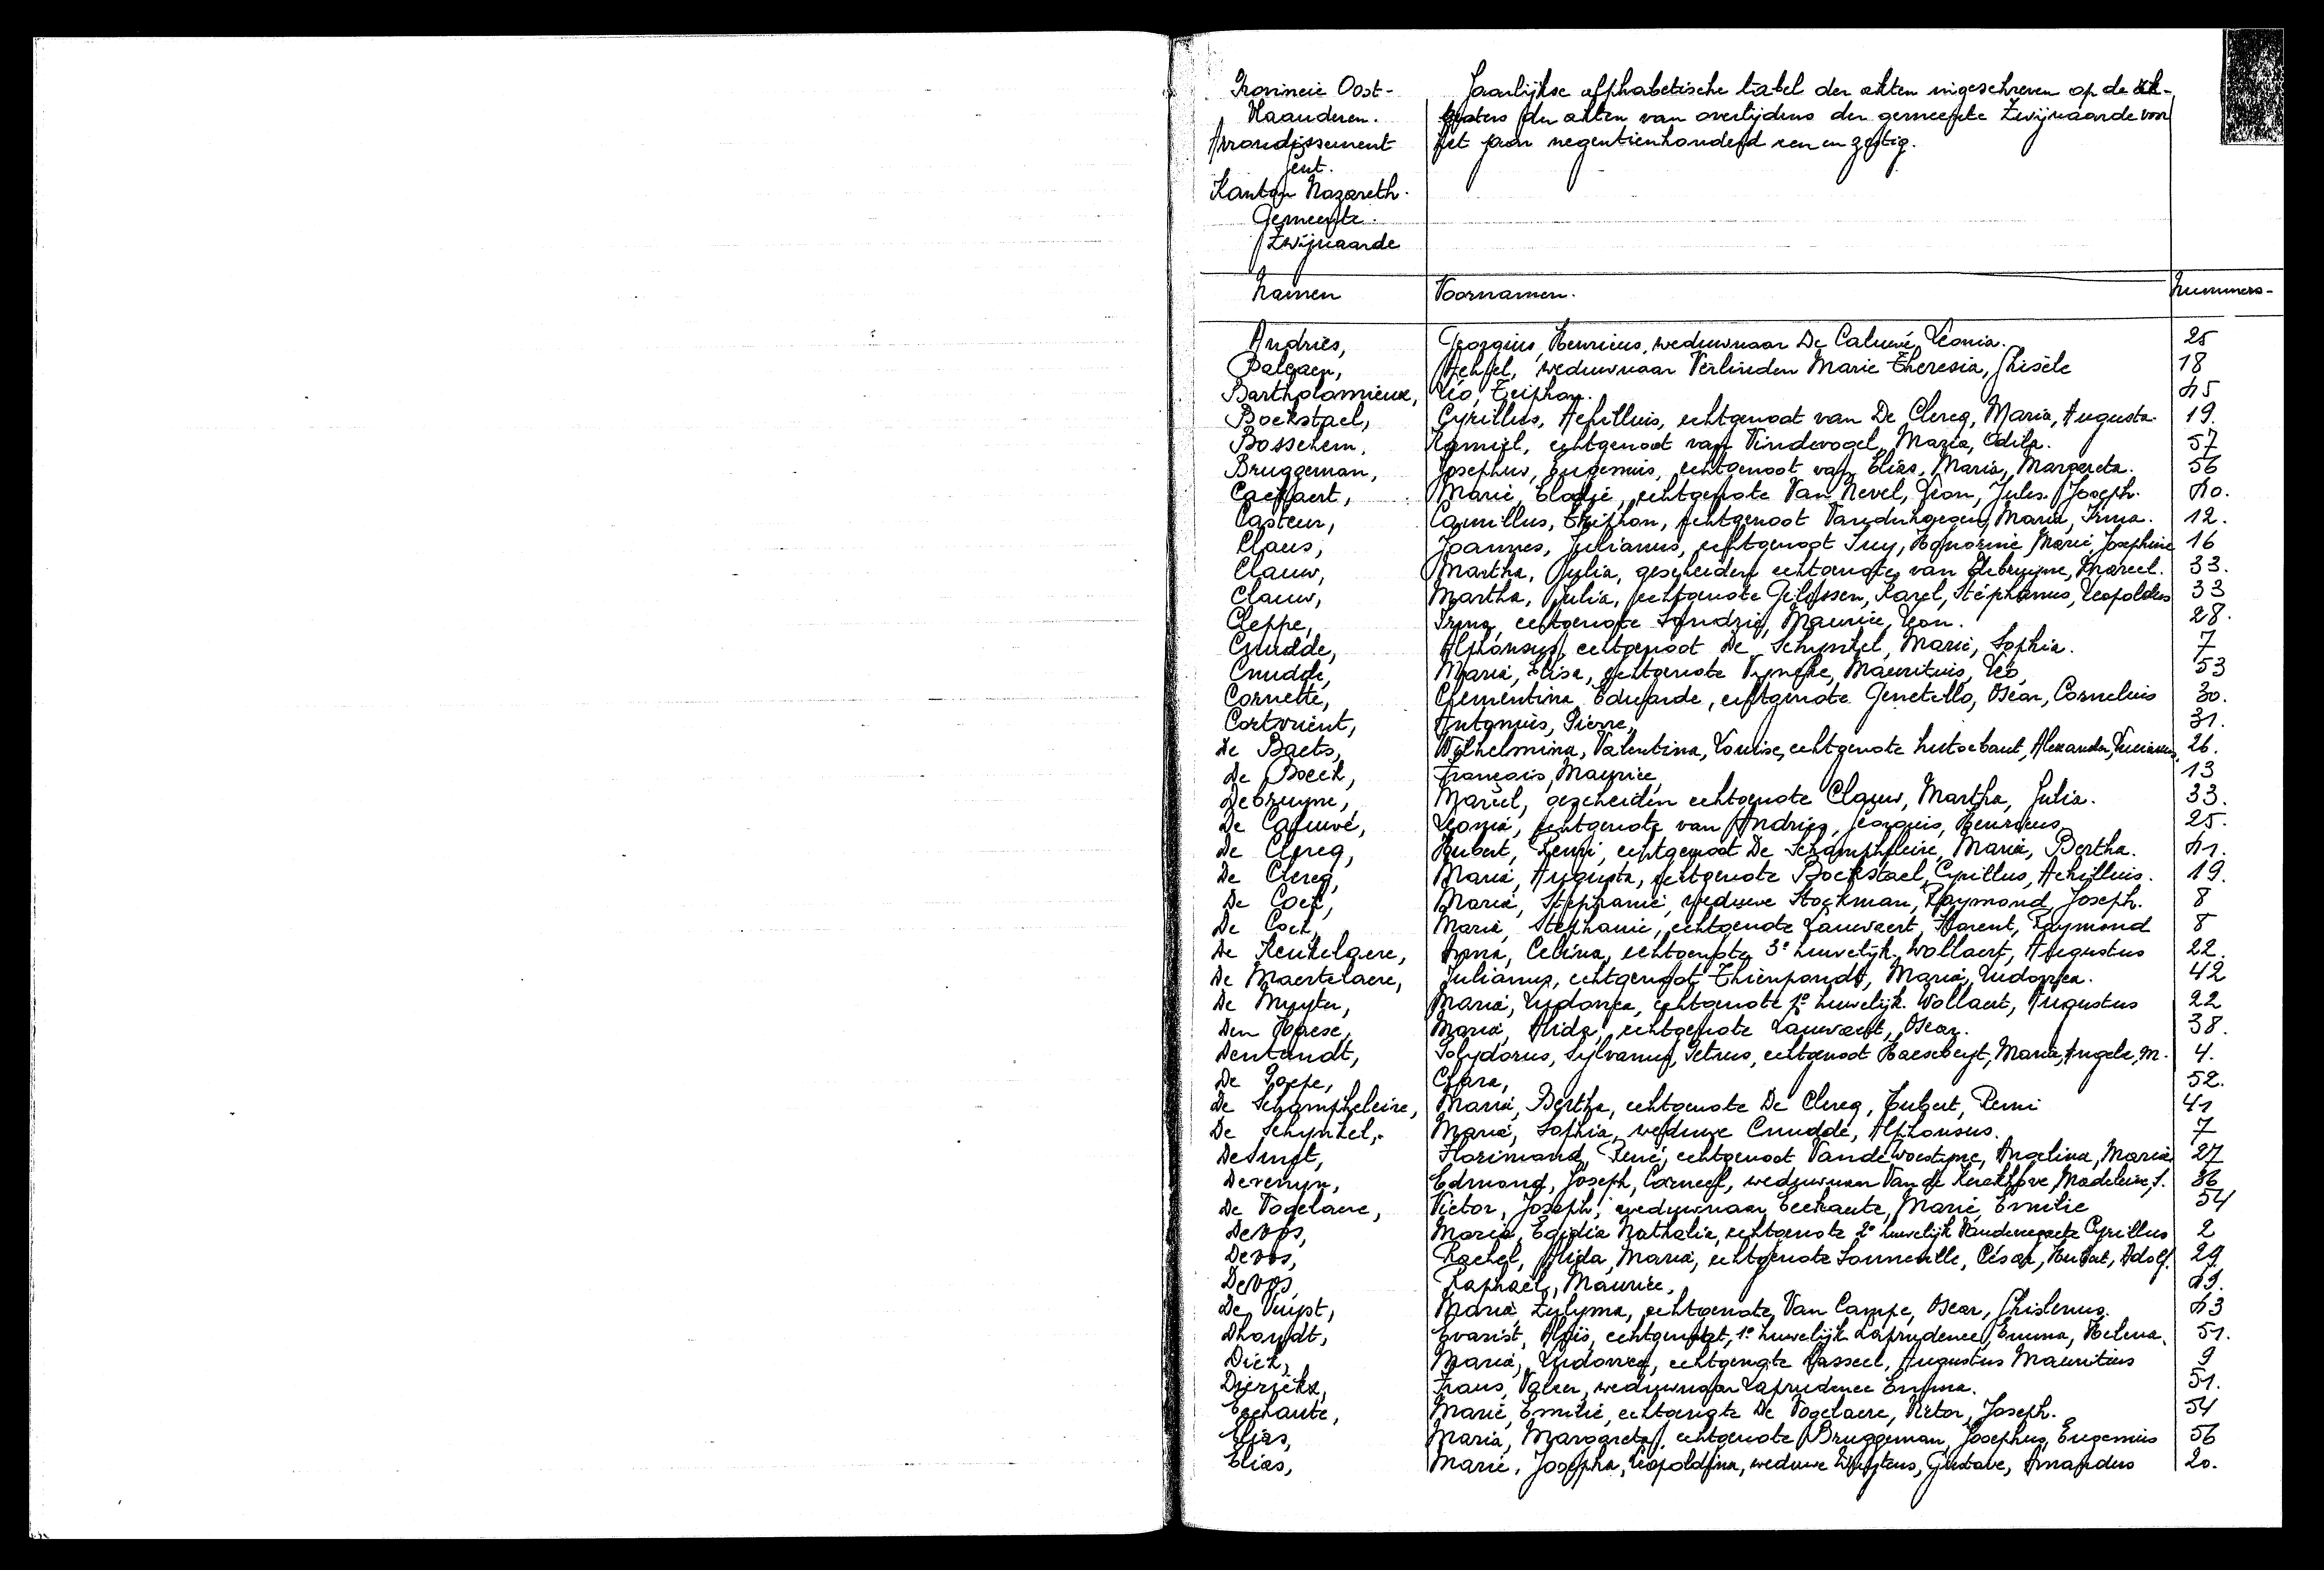 Provincie Oost-
Vlaanderen.
Arrondissement
Gent.
Kanton Nazareth.
Gemeente.
Zwijnaarde
Jaarlijkse alphabetische tabel der akten ingeschreven op de
der akten van overlijdens der gemeente Zwijnaarde voor
het jaar negentienhonderd een en zestig.
Namen Voornamen. Nummers-
Andries, Georgius, Henricus, weduwnaar De Caluwé, Leonia. 25
Balgaen, weduwnaar Verlinden Marie Theresia, Ghisèle 18
Bartholomieux, Léo, Triphon. 45
Boekstael, Cyrillus, Achilluis, echtgenoot van De Clercq, Maria, Augusta. 19.
Bosschem, Kamiel, echtgenoot van Vindevogel, Maria, Odila. 57
Bruggeman, Josephus, Eugenius, echtgenoot van Elias, Maria, Margareta. 56
Marie, Elodie, echtgenote Van Nevel, Léon, Jules, Joseph. 40.
Casteur, Camillus, Triphon, echtgenoot Maria, Irma. 12.
Claus, Joannes, Julianus, echtgenoot Suy, Honorine, Marie, Josephine 16
Clauw, Martha, Julia, gescheiden echtgenote van Debruyne, Marcel. 33.
Clauw, Martha, Julia, echtgenote Gelossen, Karel, Stéphanus, Leopoldus 33
Cleppe, Irma, echtgenote Maurice, Léon. 28.
Cnudde, Alphonsus, echtgenoot De Schynkel, Marie, Sophia. 7
Cnudde, Maria, Elisa, echtgenote Vyncke, Mauritius, Léo, 53
Cornette, Clementina, Eduarde, echtgenote Genetello, Oscar, Cornelius 30.
Cortvrient, Antonius, Pierre, 31.
De Baets, Wilhelmina, Valentina, Louise, echtgenote Hutsebaut, Alexander, 26.
De Boeck, François, Maurice, 13
Debruyne, Marcel, gescheiden echtgenote Clauw, Martha, Julia. 33.
De Caluwé, Leonia, echtgenote van Andries, Georgius, Henricus. 25.
De Clercq, Hubert, Remi, echtgenoot De Schampheleire, Maria, Bertha. 41.
De Clercq, Maria, Augusta, echtgenote Boekstael, Cyrillus, Achilluis. 19.
De Cock, Maria, Stephanie, weduwe Stockman, Raymond, Joseph. 8
De Cock, Maria, Stephanie, echtgenote Lauwaert, Florent, Raymond 8
De Keukelaere, Anna, Celina, echtgenote 3e huwelijk Wollaert, Augustus 22.
De Maertelaere, Julianus, echtgenoot Thienpondt, Maria, Ludovica. 42
De Muyter, Maria, Ludovica, echtgenote 1e huwelijk. Wollaert, Augustus 22
Den Haese, Maria, Alida, echtgenote Lauwaert, Oscar. 38.
Dentandt, Polydorus, Sylvanus, Petrus, echtgenoot Haesebeyt, Maria, Angele, M. 4.
De Paepe, Clara, 52.
De Schampheleire, Maria, Bertha, echtgenote De Clercq, Hubert, Remi 41
De Schynkel, Maria, Sophia, weduwe Cnudde, Alphonsus. 7
Desmet, Florimond, René, echtgenoot Vande Woestyne, Angelina, Maria. 27
Devenyn, Edmond, Joseph, Corneel, weduwnaar Van de Kerckhove, Madeleine, S. 36
De Vogelaere, Victor, Joseph, weduwnaar Eechaute, Marie, Emilie 54
Devos, Maria, Egidia Nathalia, echtgenote 2e huwelijk Cyrillus 2
Devos, Rachel, Alida, Maria, echtgenote Sonneville, César, Hubert, Adolf. 29
Devos, Raphaël, Maurice, 49.
De Vuyst, Maria, Zulyma, echtgenote, Van Campe, Oscar, Ghislenus. 43
Dhondt, Evarist, Aloïs, echtgenoot, 1e huwelijk Laprudence, Emma, Helena. 51.
Dick, Maria, Ludovica, echtgenote Masseel, Augustus Mauritius 9
Dierickx, Frans, Valeer, weduwnaar Laprudence Emma. 51.
Eechaute, Marie, Emilie, echtgenote De Vogelaere, Victor, Joseph. 54
Elias, Maria, Margareta, echtgenote Bruggeman, Josephus, Eugenius 56
Elias, Marie, Josepha, Leopoldina, weduwe Wuytens, Gustave, Amandus 20.